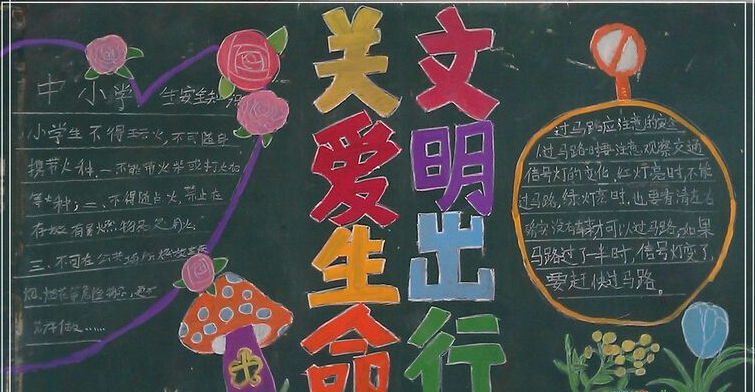 中小学生安全知
小学生不得玩火，不可随身
携带火种，一不能带火柴或打火
等火种；二、不得随点火，禁止在
存放有易燃物品处用火
三、不可在公共场所燃放
关爱生命
文明出行
过马路应注意的
1.过马路时要注意观察交通
信号灯的变化，红灯亮时，不能
过马路，绿灯亮时，也要看清左右
确实没有车辆才可以过马路，如果
马路过了一半时，信号灯变了，
要赶快过马路。